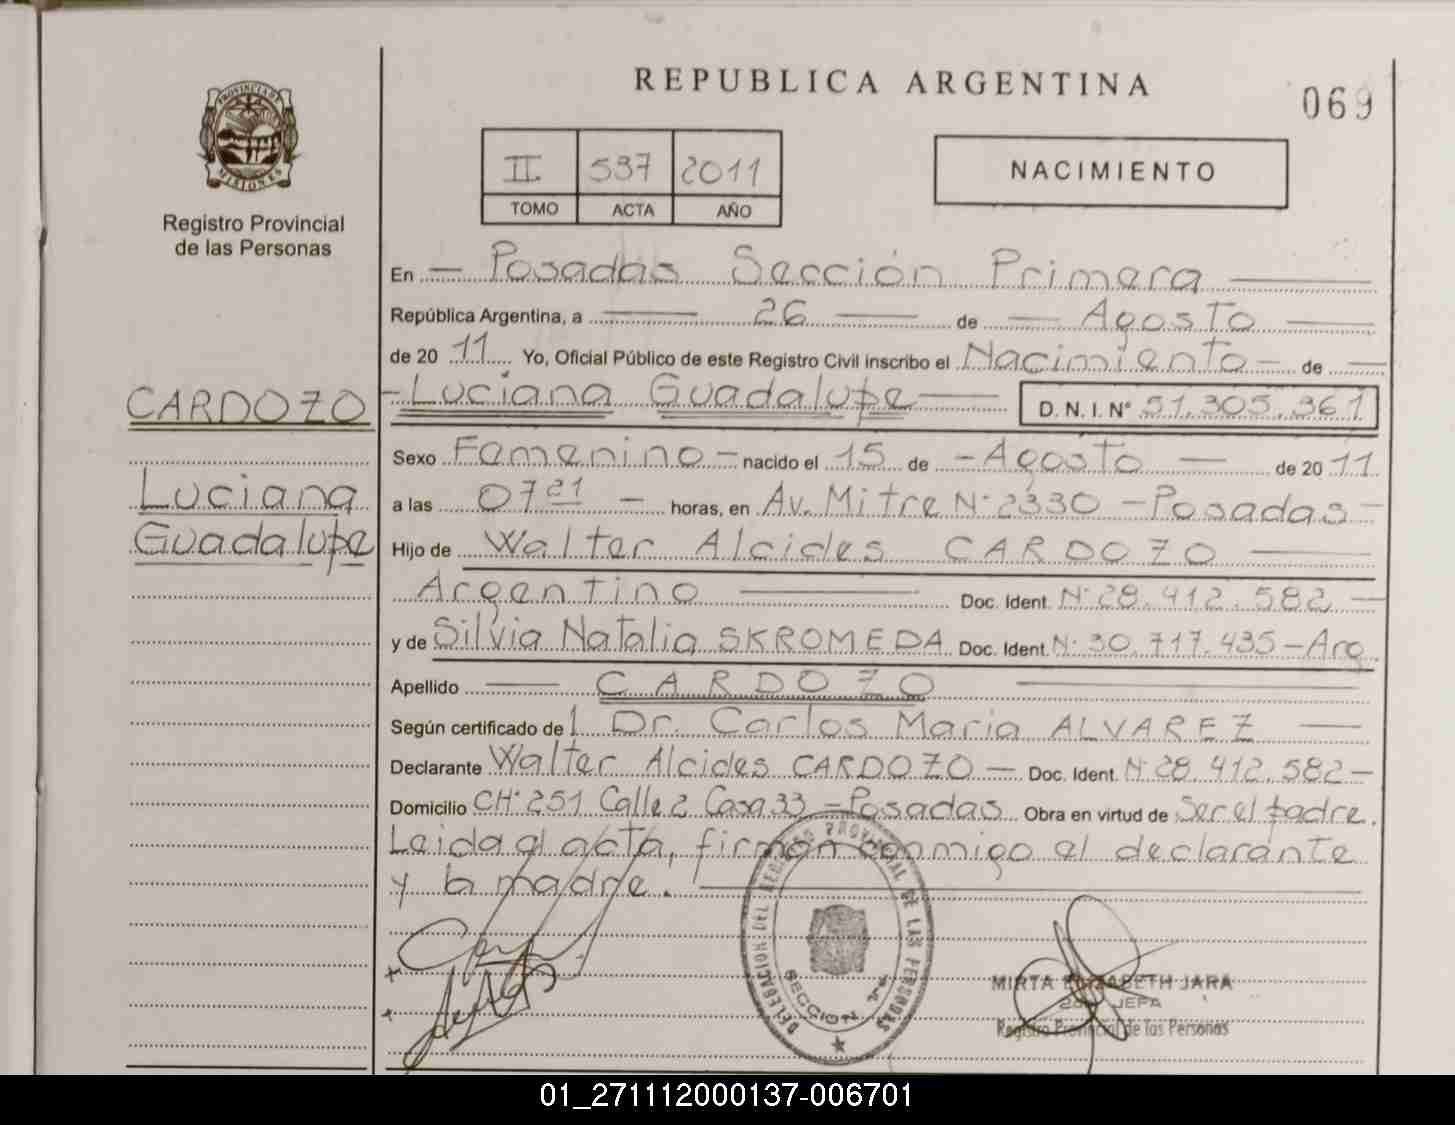 REPUBLICA ARGENTINA
069
PROVINCIA DE MISIONES
Registro Provincial
de las Personas
II 537 2011
TOMO ACTA AÑO
NACIMIENTO
En — Posadas Sección Primera
República Argentina, a 26 de Agosto
de 20 11 Yo, Oficial Público de este Registro Civil inscribo el Nacimiento de
CARDOZO
Luciana
Guadalupe
Luciana Guadalupe D. N. I. Nº 51.305.361
Sexo Femenino nacido el 15 de Agosto de 20 11
a las 07 21 horas, en Av. Mitre Nº 2330 - Posadas
Hijo de Walter Alcides CARDOZO
Argentino Doc. Ident. Nº 28.412.582
y de Silvia Natalia SKROMEDA Doc. Ident. Nº 30.717.435 - Arg
Apellido CARDOZO
Según certificado de l Dr. Carlos Maria ALVAREZ
Declarante Walter Alcides CARDOZO Doc. Ident. Nº 28.412.582
Domicilio CHº 251 Calle 2 Casa 33 - Posadas Obra en virtud de Ser el padre.
Leida el acta, firman conmigo el declarante
y la madre.
DELEGACION DEL REGISTRO PROVINCIAL DE LAS PERSONAS
SECCION 1ra
MIRTA ELIZABETH JARA
2da JEFA
Registro Provincial de las Personas
01_271112000137-006701